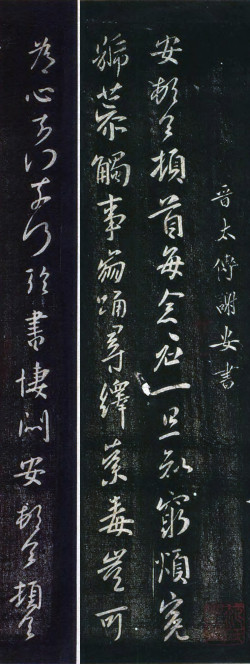 晉太傅謝安書
安頓首頓首每念君一旦知窮煩冤
號慕觸事崩踴尋繹荼毒豈可
為心奈何奈何臨書悽悶安頓首頓首